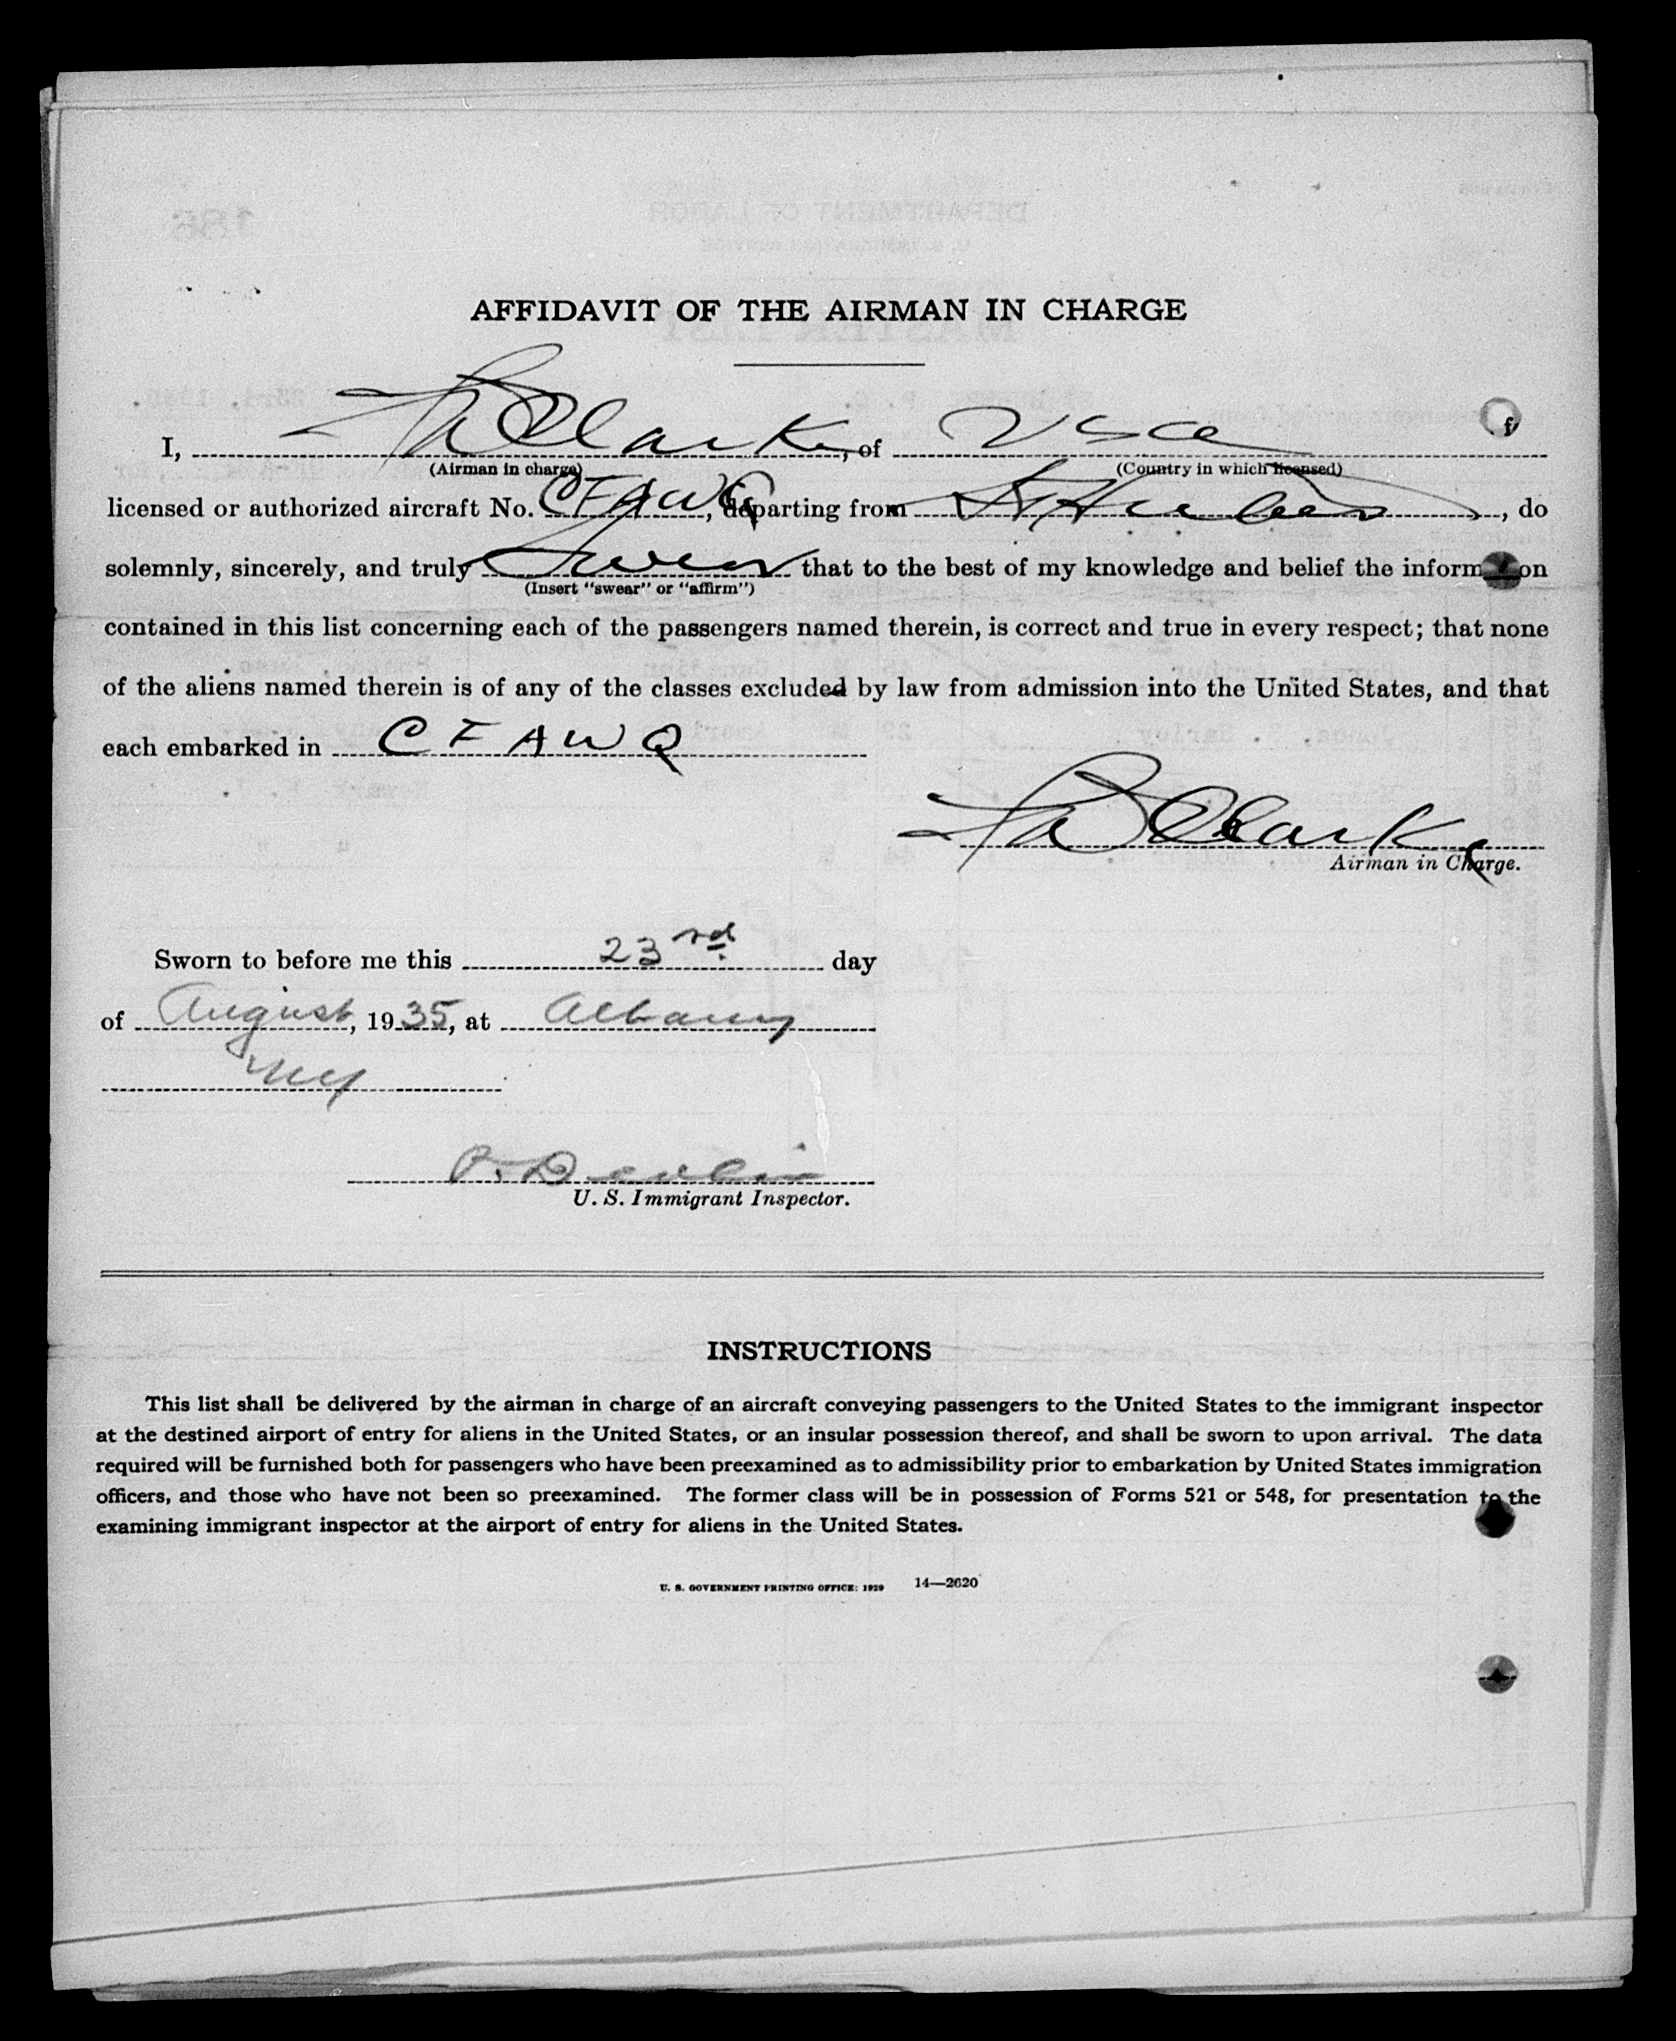 AFFIDAVIT OF THE AIRMAN IN CHARGE
I, Clark, of USA
(Airman in charge) (Country in which licensed)
licensed or authorized aircraft No. CFAWQ, departing from St Hubert, do
solemnly, sincerely, and truly swear that to the best of my knowledge and belief the information
(Insert "swear" or "affirm")
contained in this list concerning each of the passengers named therein, is correct and true in every respect; that none
of the aliens named therein is of any of the classes excluded by law from admission into the United States, and that
each embarked in CFAWQ
Clark
Airman in Charge.
Sworn to before me this 23rd day
of August, 1935, at Albany
NY
P. Devlin
U. S. Immigrant Inspector.
INSTRUCTIONS
This list shall be delivered by the airman in charge of an aircraft conveying passengers to the United States to the immigrant inspector
at the destined airport of entry for aliens in the United States, or an insular possession thereof, and shall be sworn to upon arrival. The data
required will be furnished both for passengers who have been preexamined as to admissibility prior to embarkation by United States immigration
officers, and those who have not been so preexamined. The former class will be in possession of Forms 521 or 548, for presentation to the
examining immigrant inspector at the airport of entry for aliens in the United States.
U. S. GOVERNMENT PRINTING OFFICE: 1929 14—2620